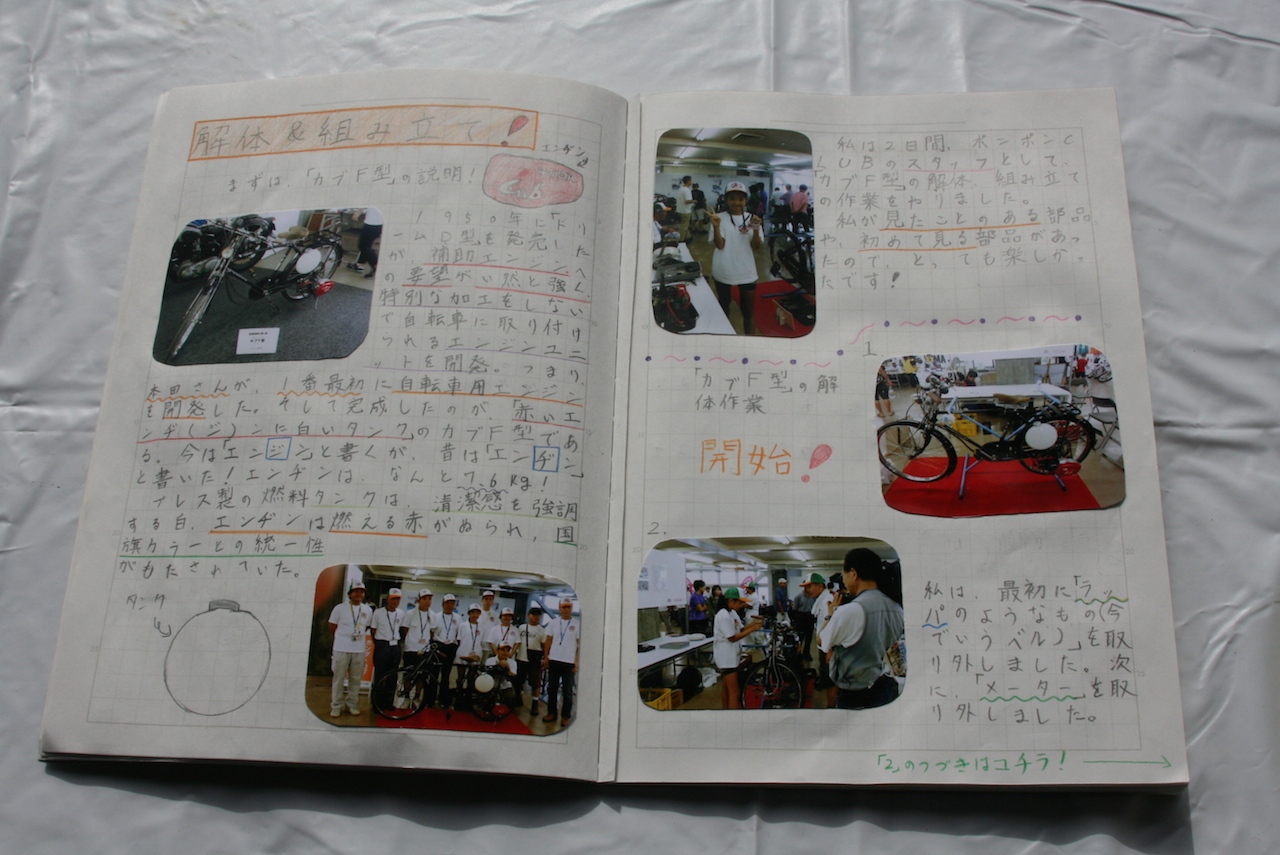 解体&組み立て!
エンヂン
まずは、「カブF型」の説明!
Cub
1950年に「ドリ
ームD型を発売した
が、補助エンジンへ
の要望がい然と強く、
特別な加工をしない
で自転車に取り付け
られるエンジンユニ
ットを開発。つまり、
本田さんが、1番最初に自転車用エンジン
を開発した。そして完成したのが、「赤いエ
ンヂ(ジ)ンに白いタンク」のカブF型であ
る。今は「エンジン」と書くが、昔は「エンヂン」
と書いた!エンヂンは、なんと7.6kg!
プレス製の燃料タンクは、清潔感を強調
する白、エンヂンは燃える赤がぬられ、国
旗カラーとの統一性
がもたされていた。
タンク
私は2日間、ポンポンC
LUBのスタッフとして、
「カブF型」の解体、組み立て
の作業をやりました。
私が見たことのある部品
や、初めて見る部品があっ
たので、とっても楽しかっ
たです!
1.
「カブF型」の解
体作業
開始!
2.
私は、最初に「ラッ
パのようなもの(今
でいうベル)」を取
り外しました。次
に、「メーター」を取
り外しました。
「2」のつづきはコチラ!